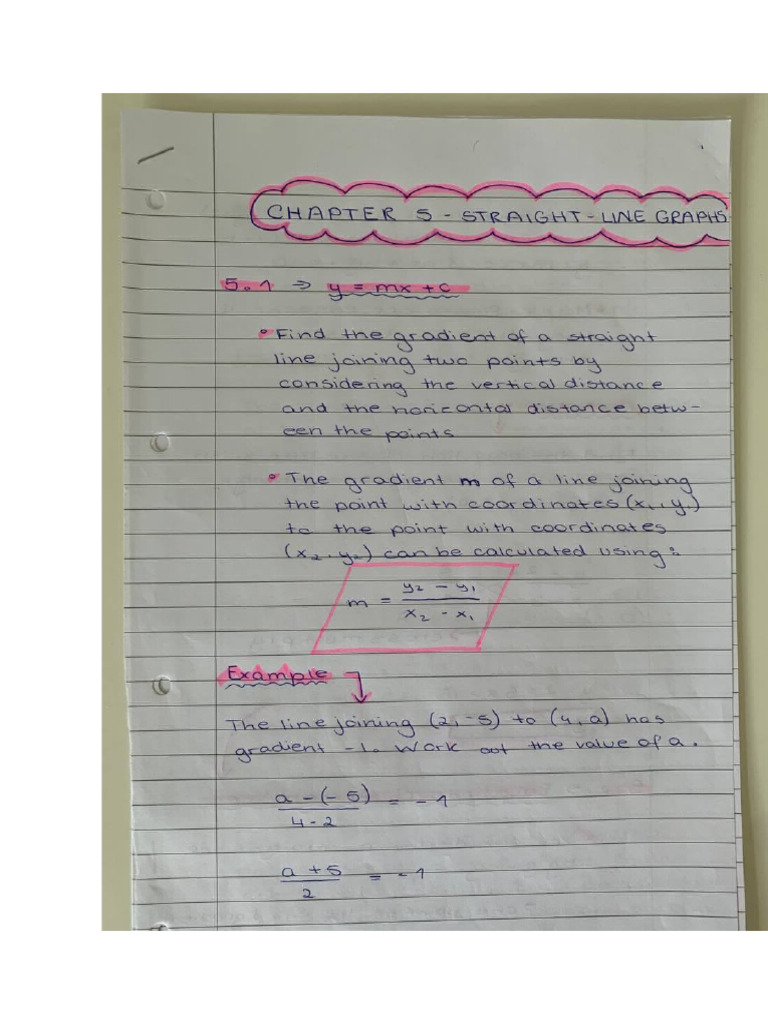 CHAPTER 5 - STRAIGHT-LINE GRAPHS
5.1 ⇒ y = mx + c
• Find the gradient of a straight
line joining two points by
considering the vertical distance
and the horicontal distance betw-
een the points
• The gradient m of a line joining
the point with coordinates (x₁, y₁)
to the point with coordinates
(x₂, y₂) can be calculated using:
m = (y₂ - y₁)/(x₂ - x₁)
Example
The line joining (2, -5) to (4, a) has
gradient -1. Work out the value of a.
(a - (-5))/(4 - 2) = -1
(a + 5)/2 = -1